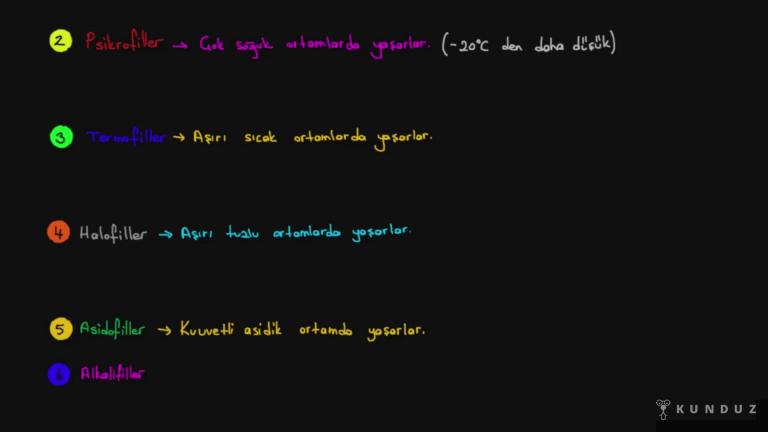 2 Psikrofiller → Çok soğuk ortamlarda yaşarlar. (-20°C den daha düşük)
3 Termofiller → Aşırı sıcak ortamlarda yaşarlar.
4 Halofiller → Aşırı tuzlu ortamlarda yaşarlar.
5 Asidofiller → Kuvvetli asidik ortamda yaşarlar.
6 Alkalifiller
KUNDUZ